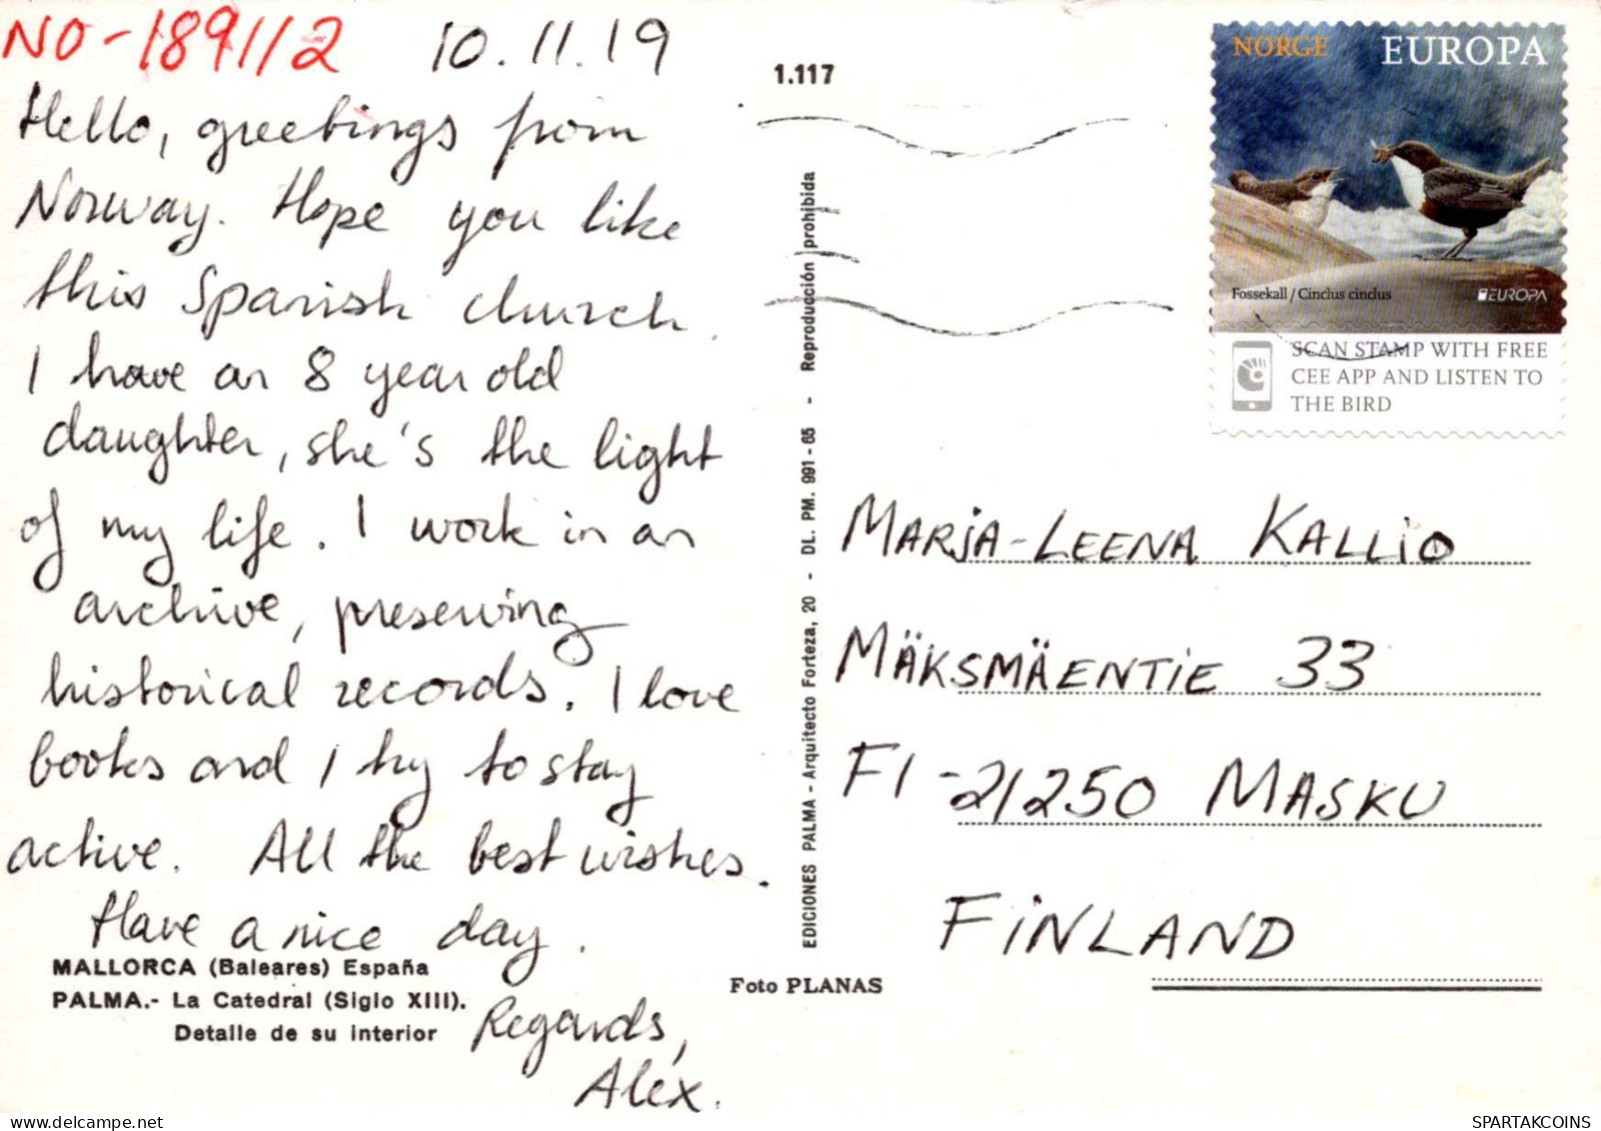 NO-189112
10.11.19
Hello, greetings from
Norway. Hope you like
this Spanish church.
I have an 8 year old
daughter, she's the light
of my life. I work in an
archive, preserving
historical records. I love
books and I try to stay
active. All the best wishes.
Have a nice day.
Regards,
Alex.
MALLORCA (Baleares) España
PALMA.- La Catedral (Siglo XIII).
Detalle de su interior
1.117
EDICIONES PALMA - Arquitecto Forteza, 20 - DL. PM. 991-65 - Reproducción prohibida
Foto PLANAS
NORGE EUROPA
Fossekall / Cinclus cinclus
EUROPA
SCAN STAMP WITH FREE
CEE APP AND LISTEN TO
THE BIRD
MARJA-LEENA KALLIO
MÄKSMÄENTIE 33
FI-21250 MASKU
FINLAND
SPARTAKCOINS